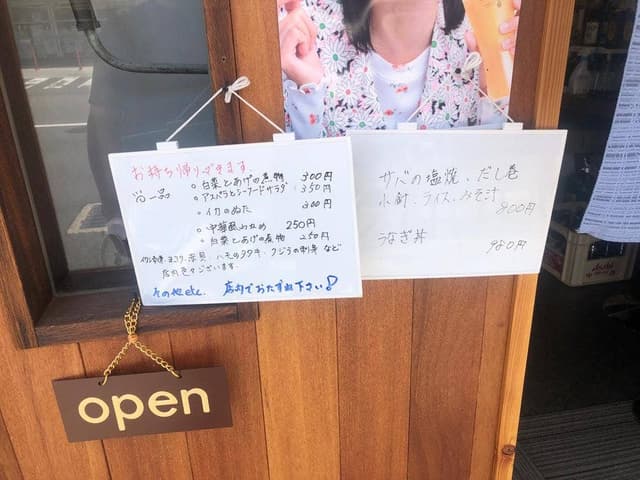 お持ち帰りできます
一品
○白菜とあげの煮物 300円
○アスパラとシーフードサラダ 350円
○イカのぬた 300円
○中華風 250円
○白菜とあげの煮物 250円
ハモのタタキ、クジラの刺身 など
店内色々ございます。
その他etc. 店内でおたずね下さい!
サバの塩焼、だし巻
小鉢、ライス、みそ汁
900円
うなぎ丼
open
Asahi